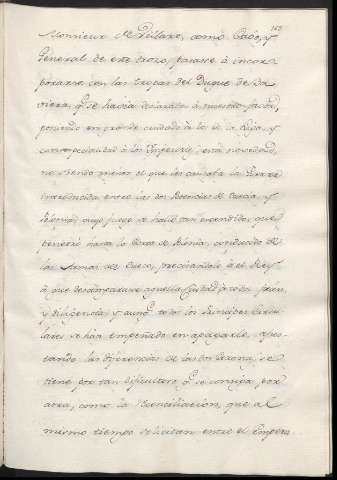 163
Monsieur de Villars, como Cabo, y
General de este trozo, pasase à incor
porarse con las tropas del Duque de Ba
viera, q.e se havia declarado à nuestro favor,
poniendo en grande cuidado à los de la Liga, y
con especialidad à los Ynperiales, esta novedad,
no siendo menor el que les causaba la Guerra
introducida entre las dos Potencias de Suecia, y
Polonia cuyo fuego se halla tan encendido, que
penetrò hasta la Corte de Polonia, conducido de
las Armas del Sueco, precisandole à el Rey
à que desamparase aquella Ciudad
y diligencia y aunq.e todos los Principes
lares se han empeñado en apagarle, ajus
tando las diferencias de las dos Coronas, se
tiene por tan dificultoso q.e se consiga por
aora, como la Reconciliacion, que al
mismo tiempo solicitan entre el Empera